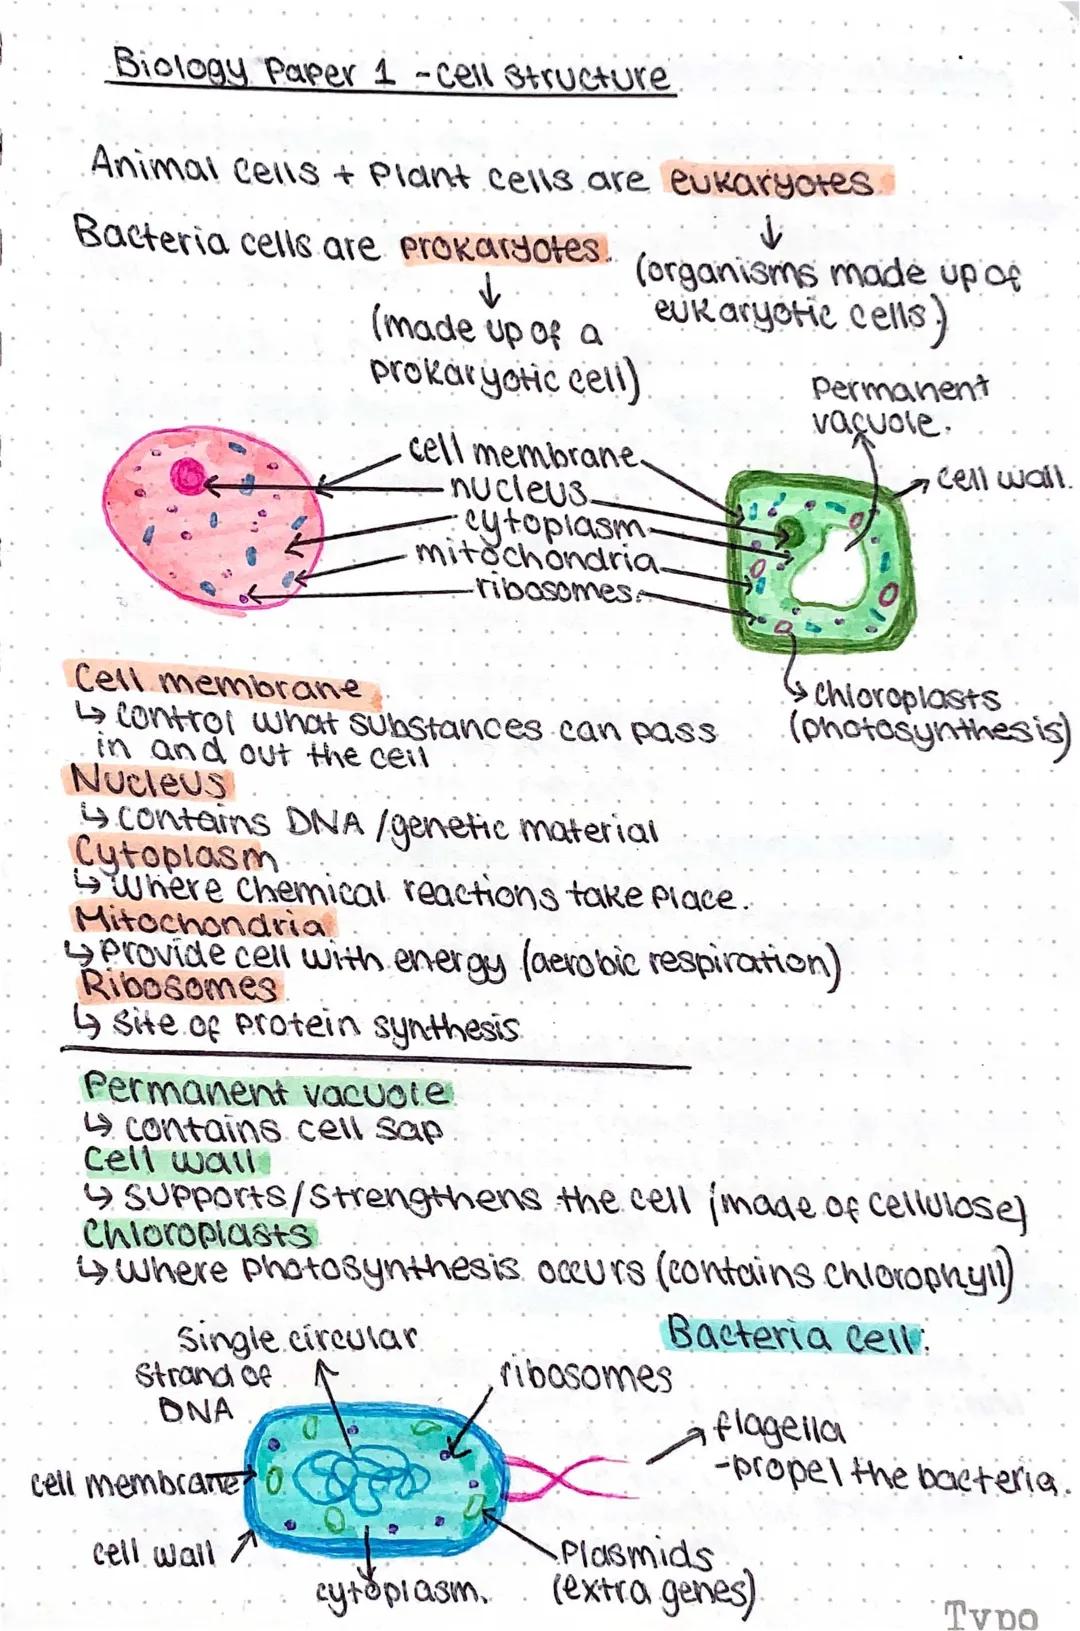 Biology Paper 1 - cell structure
Animal cells + Plant cells are eukaryotes
Bacteria cells are prokaryotes.
(organisms made up of
eukaryotic cells)
(made up of a
prokaryotic cell)
Permanent
vacuole.
cell membrane
nucleus
cytoplasm
mitochondria
ribosomes
cell wall.
chloroplasts
(photosynthesis)
Cell membrane
↳ control what substances can pass
in and out the cell
Nucleus
↳ contains DNA /genetic material
Cytoplasm
↳ where chemical reactions take place.
Mitochondria
↳ provide cell with energy (aerobic respiration)
Ribosomes
↳ site of protein synthesis
Permanent vacuole
↳ contains cell sap
Cell wall
↳ supports/strengthens the cell (made of cellulose)
Chloroplasts
↳ where photosynthesis occurs (contains chlorophyll)
Bacteria cell:
Single circular
strand of
DNA
ribosomes
flagella
-propel the bacteria.
cell membrane
cell wall
cytoplasm.
Plasmids
(extra genes)